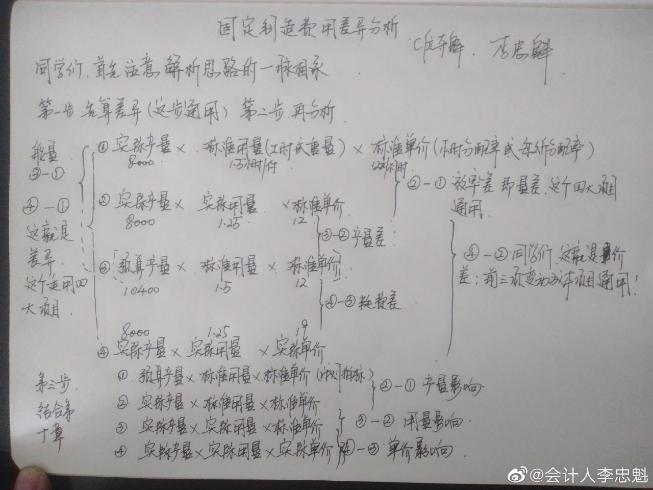 固定制造费用差异分析
李忠魁
同学们,首先注意解析思路的一脉相承
第一步 先算差异(这步通用) 第二步 再分析
①实际产量 × 标准用量(工时或重量) × 标准单价(小时分配率或每斤分配率)
8000 1.5小时/件
③-①
④-①
这就是
差异
这个通用四
大项目
②实际产量 × 实际用量 × 标准单价
8000 1.25 12
②-① 效率差 即量差,这个四大项目
通用
③-② 产量差
③预算产量 × 标准用量 × 标准单价
10400 1.5 12
④-③ 耗费差
④-② 同学们,这就是价
差:前三项变动成本项目通用!
8000 1.25 19
④实际产量 × 实际用量 × 实际单价
第三步
结合第
十章
①预算产量×标准用量×标准单价
②实际产量×标准用量×标准单价
③实际产量×实际用量×标准单价
④实际产量×实际用量×实际单价
②-① 产量影响
③-② 用量影响
④-③ 单价影响
@会计人李忠魁